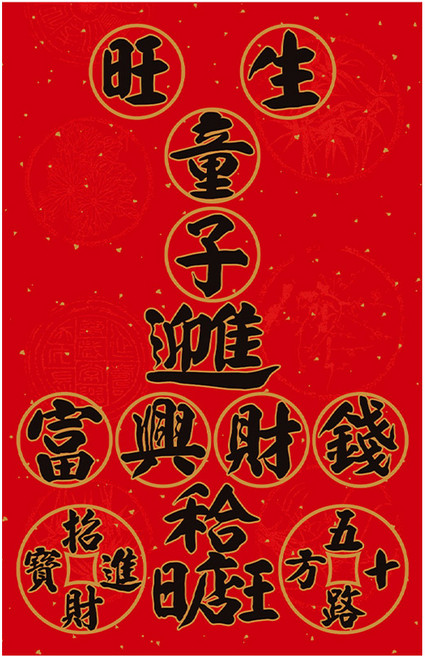 旺 生
童
子
富 興 財 錢
秴
招財進寶
五路十方